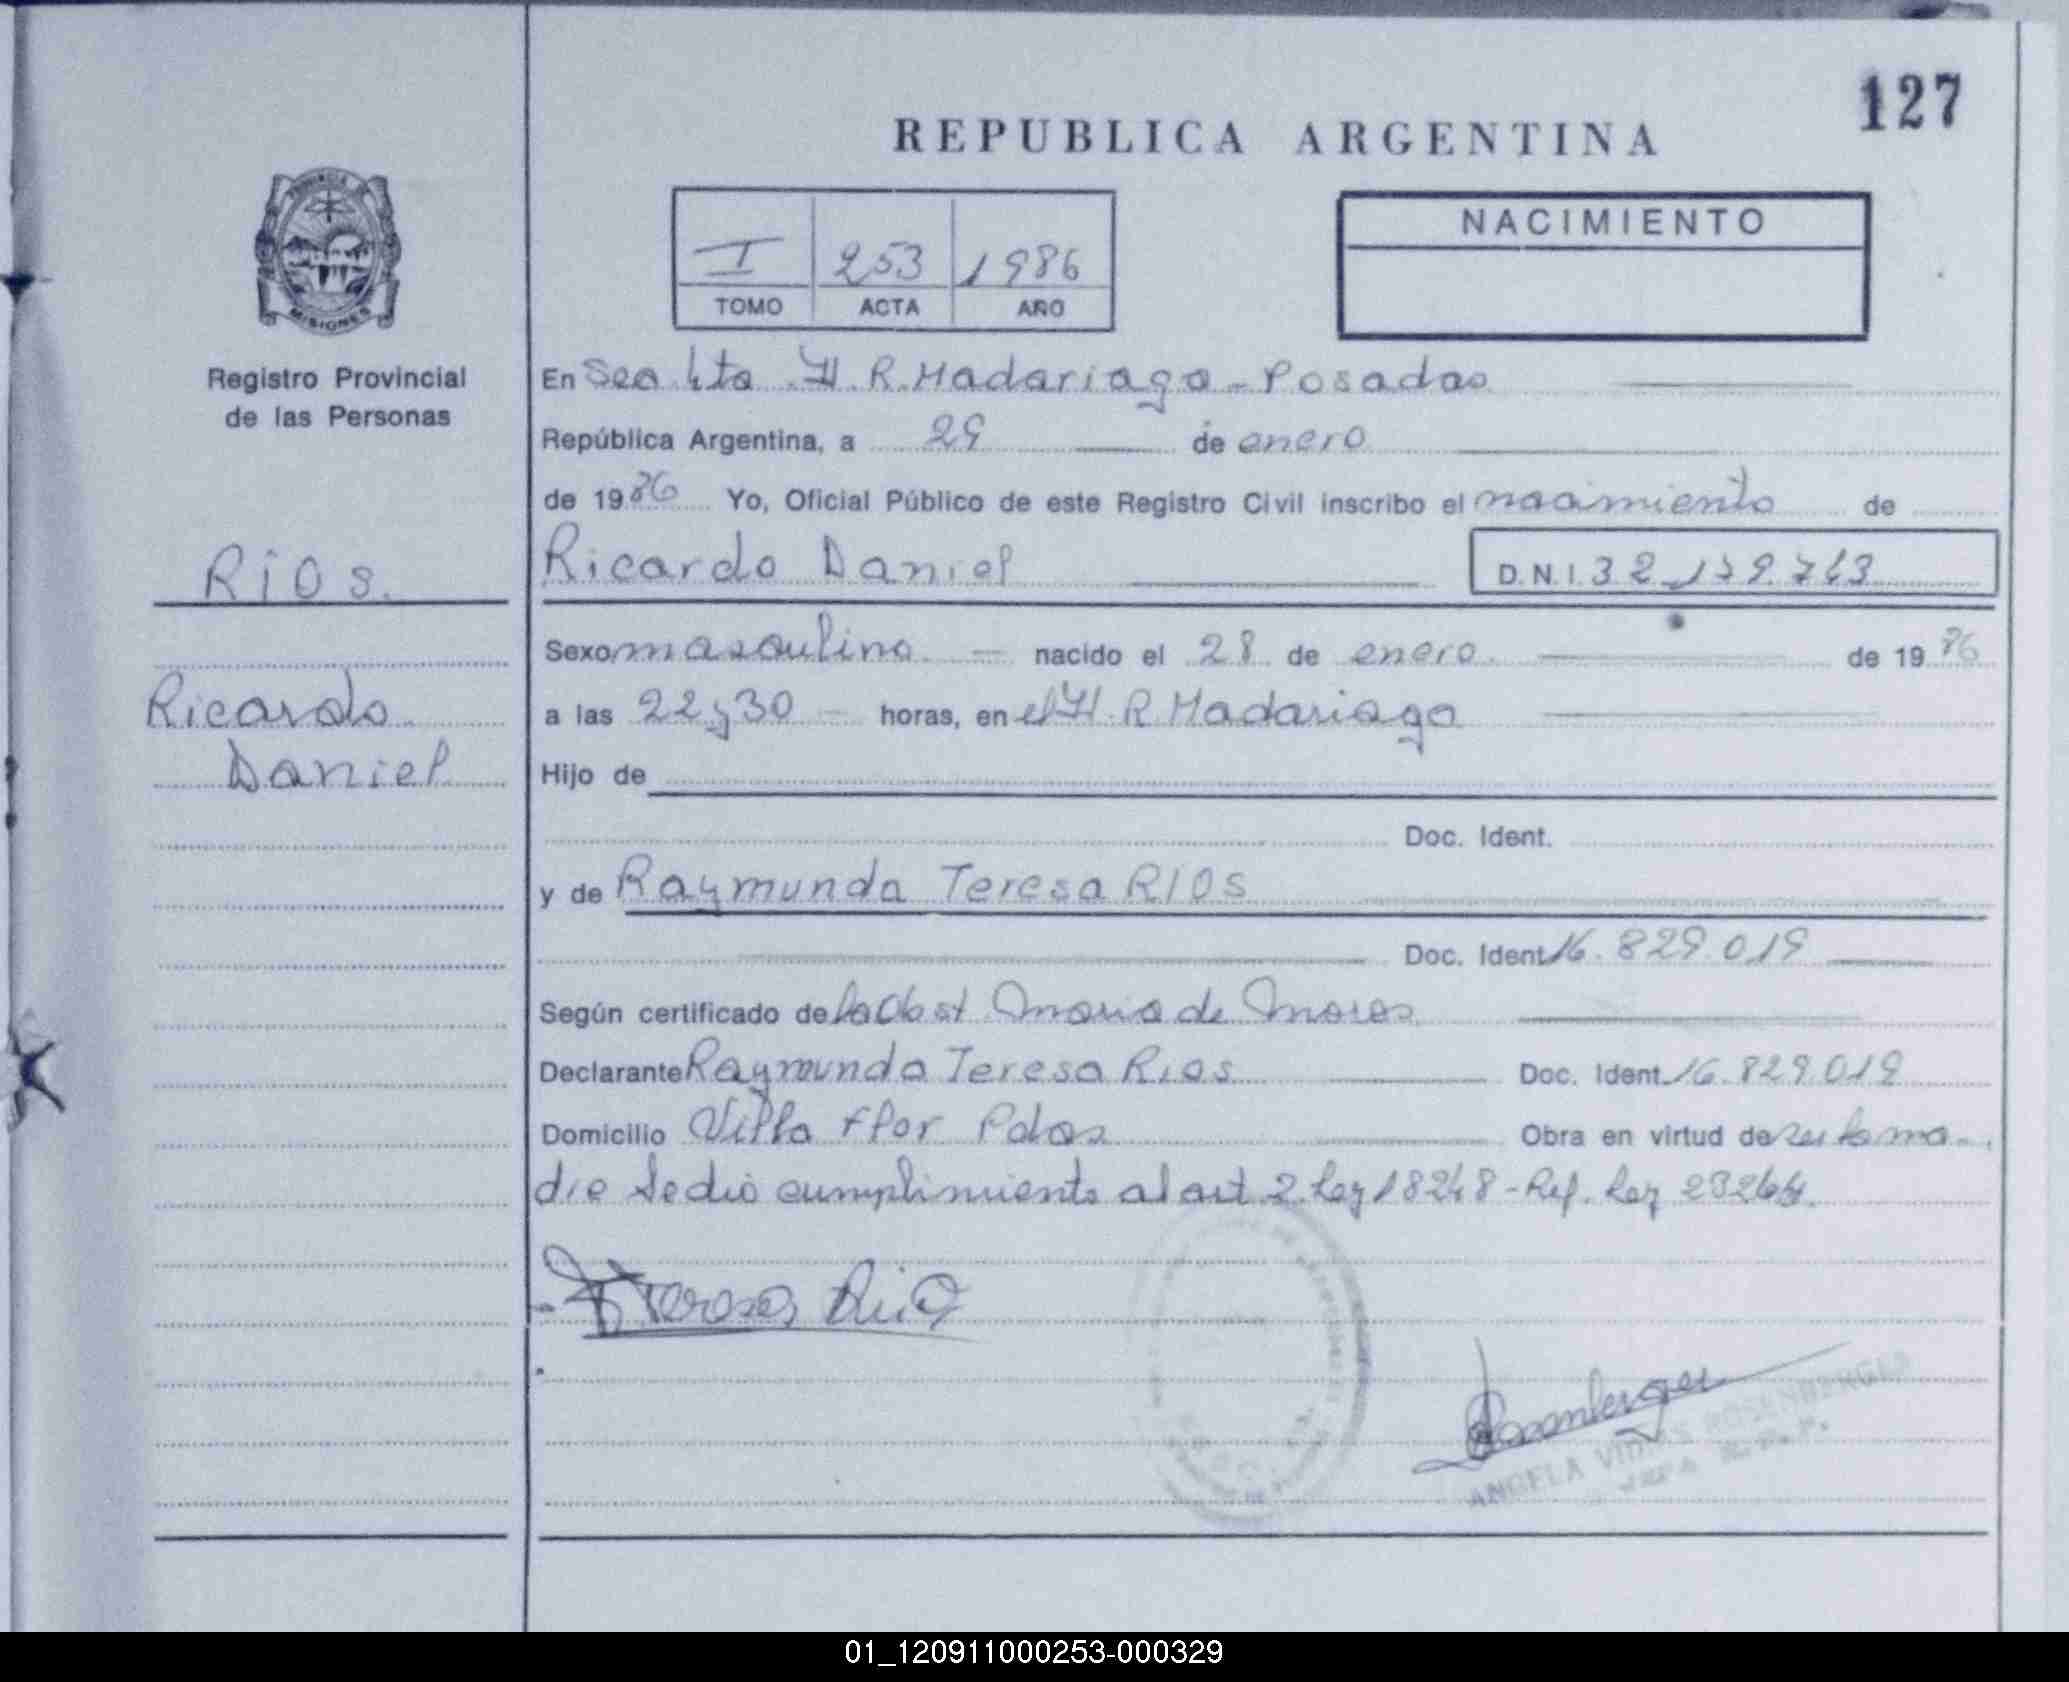 127
REPUBLICA ARGENTINA
PROVINCIA DE
MISIONES
Registro Provincial
de las Personas
I 253 1986
TOMO ACTA AÑO
NACIMIENTO
En Sec 4ta H. R. Madariaga - Posadas
República Argentina, a 29 de enero
de 1986 Yo, Oficial Público de este Registro Civil inscribo el nacimiento de
Rios.
Ricardo Daniel D.N.I. 32.179.
Sexo masculino nacido el 28 de enero de 1986
Ricardo
Daniel
a las 22 y 30 horas, en el H. R. Madariaga
Hijo de
Doc. Ident.
y de Raymunda Teresa RIOS
Doc. Ident. 16.829.019
Según certificado de la Obst Maria de
Declarante Raymunda Teresa Rios Doc. Ident. 16.829.019
Domicilio Villa Flor Pdas Obra en virtud de ser la ma-
dre Se dió cumplimiento al art 2 Ley 18248 - Ref. Ley 23264.
Teresa Rio
Rosenberger
ANGELA ROSENBERGER
01_120911000253-000329